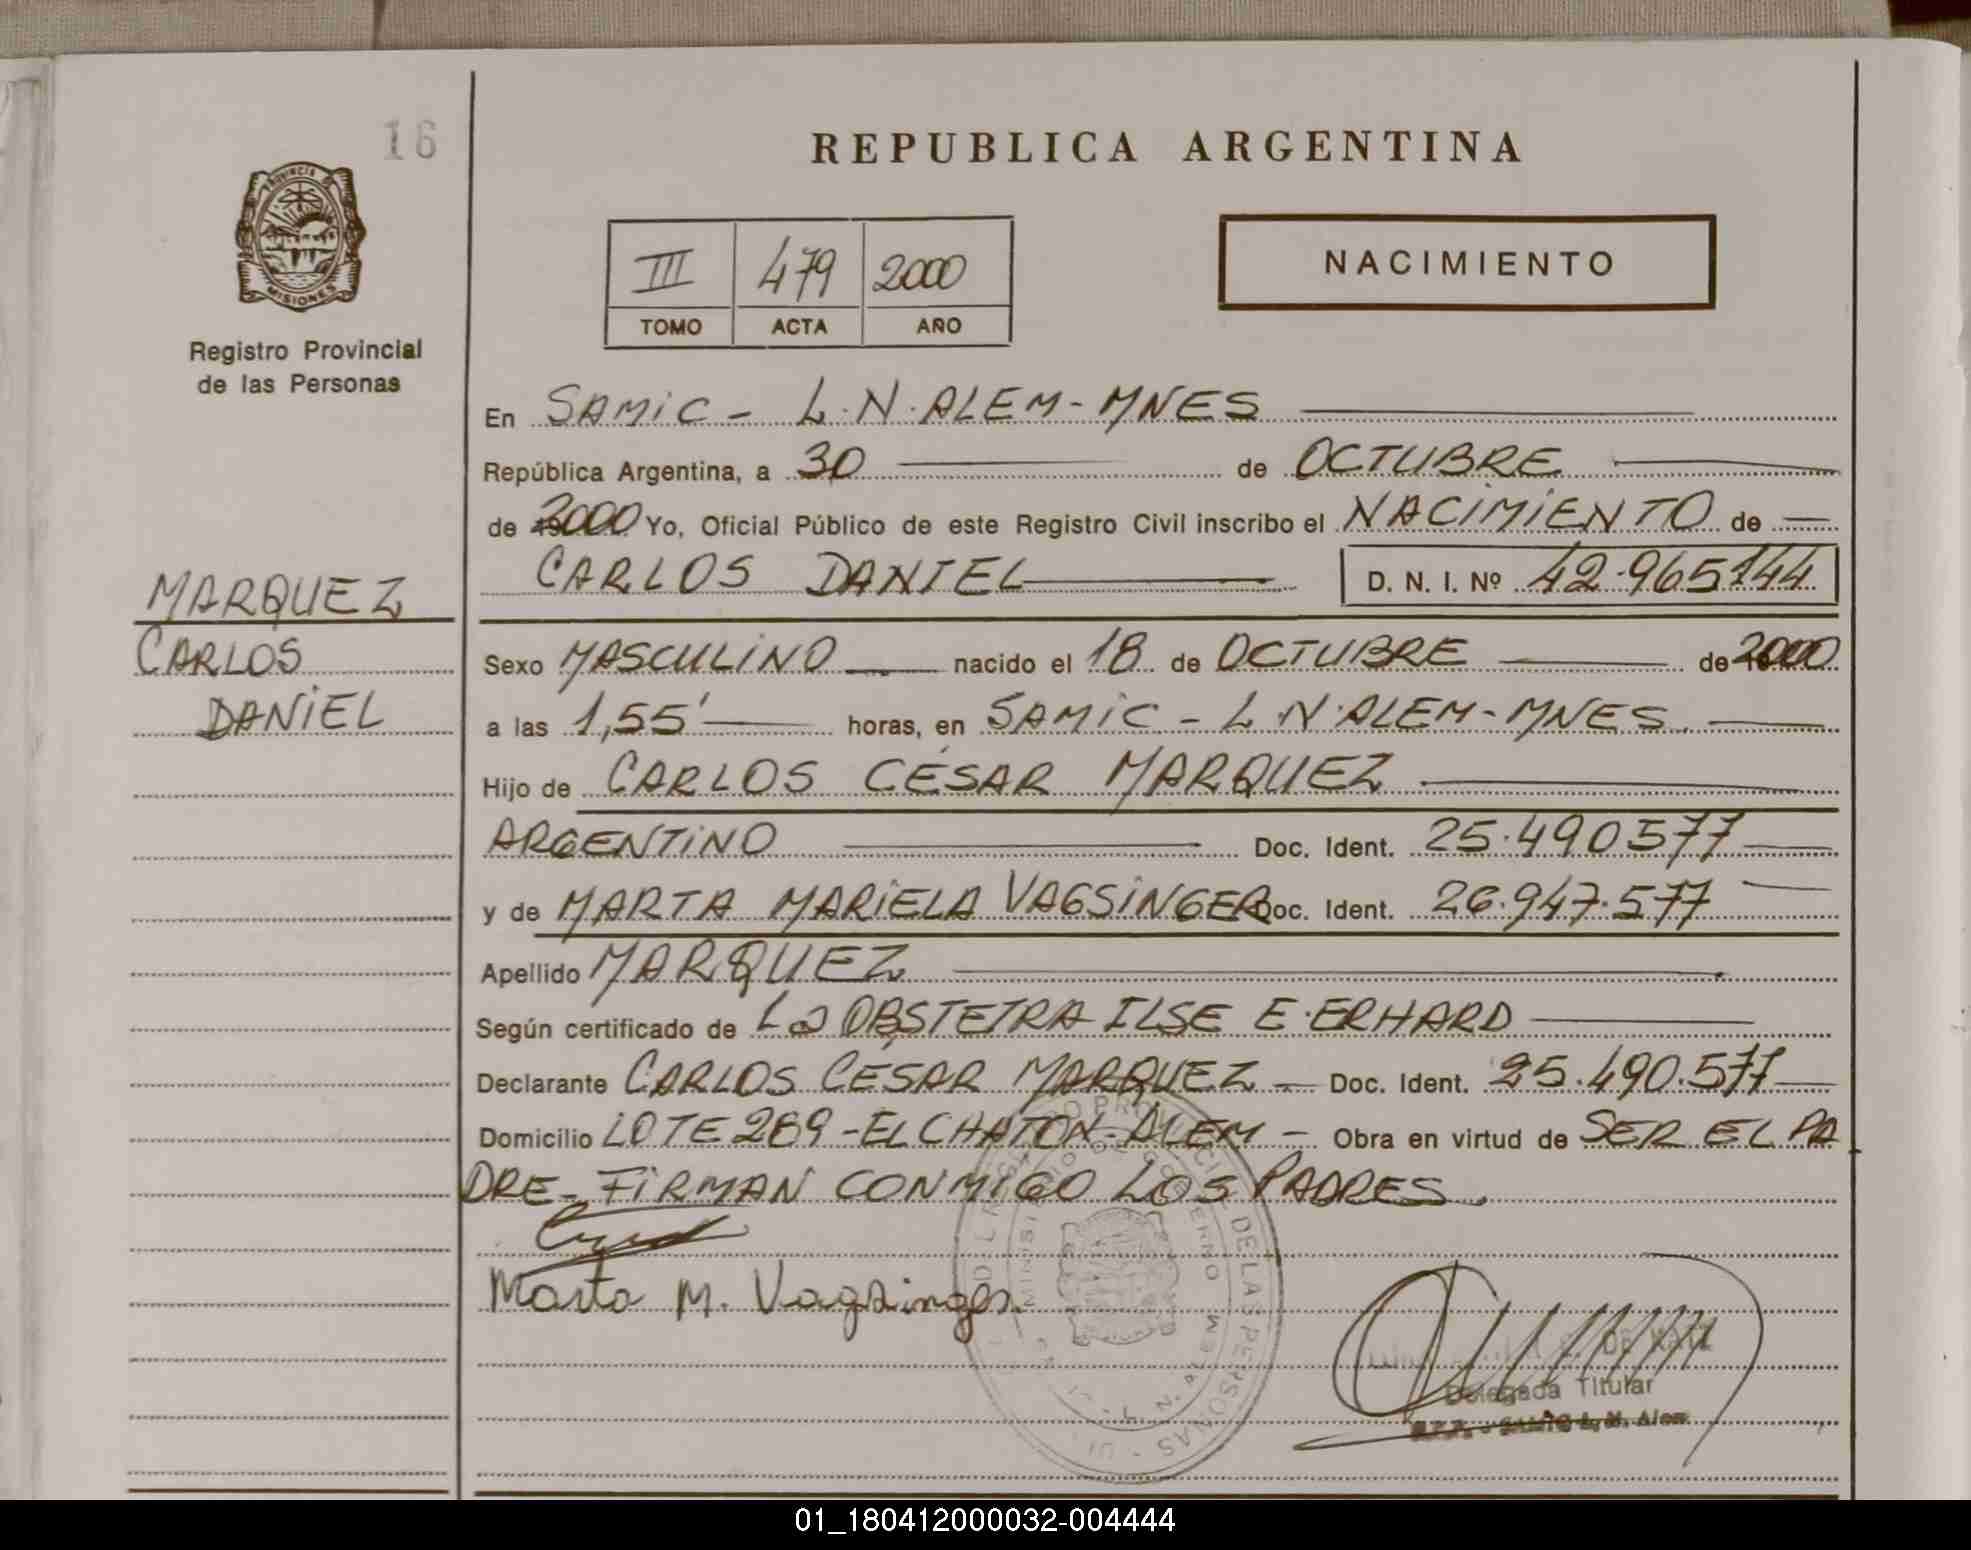 16
REPUBLICA ARGENTINA
PROVINCIA DE
MISIONES
III 479 2000
TOMO ACTA AÑO
NACIMIENTO
Registro Provincial
de las Personas
En SAMIC - L.N.ALEM - MNES
República Argentina, a 30 de OCTUBRE
de 2000 Yo, Oficial Público de este Registro Civil inscribo el NACIMIENTO de
CARLOS DANIEL D. N. I. Nº 42.965144
MARQUEZ
CARLOS
DANIEL
Sexo MASCULINO nacido el 18 de OCTUBRE de 2000
a las 1,55' horas, en SAMIC - L.N.ALEM - MNES.
Hijo de CARLOS CÉSAR MARQUEZ
ARGENTINO Doc. Ident. 25.490577
y de MARTA MARIELA VAGSINGER Doc. Ident. 26.947.577
Apellido MARQUEZ
Según certificado de La OBSTETRA ILSE E. ERHARD
Declarante CARLOS CÉSAR MARQUEZ - Doc. Ident. 25.490.577
Domicilio LOTE 289 - EL CHATON - ALEM - Obra en virtud de SER EL PA
DRE - FIRMAN CONMIGO LOS PADRES.
Marta M. Vagsinger
REGISTRO PROVINCIAL DE LAS PERSONAS
MINISTERIO DE GOBIERNO
L. N. ALEM
DE KATZ
Delegada Titular
R.P.P. - SAMIC L. N. Alem
01_180412000032-004444